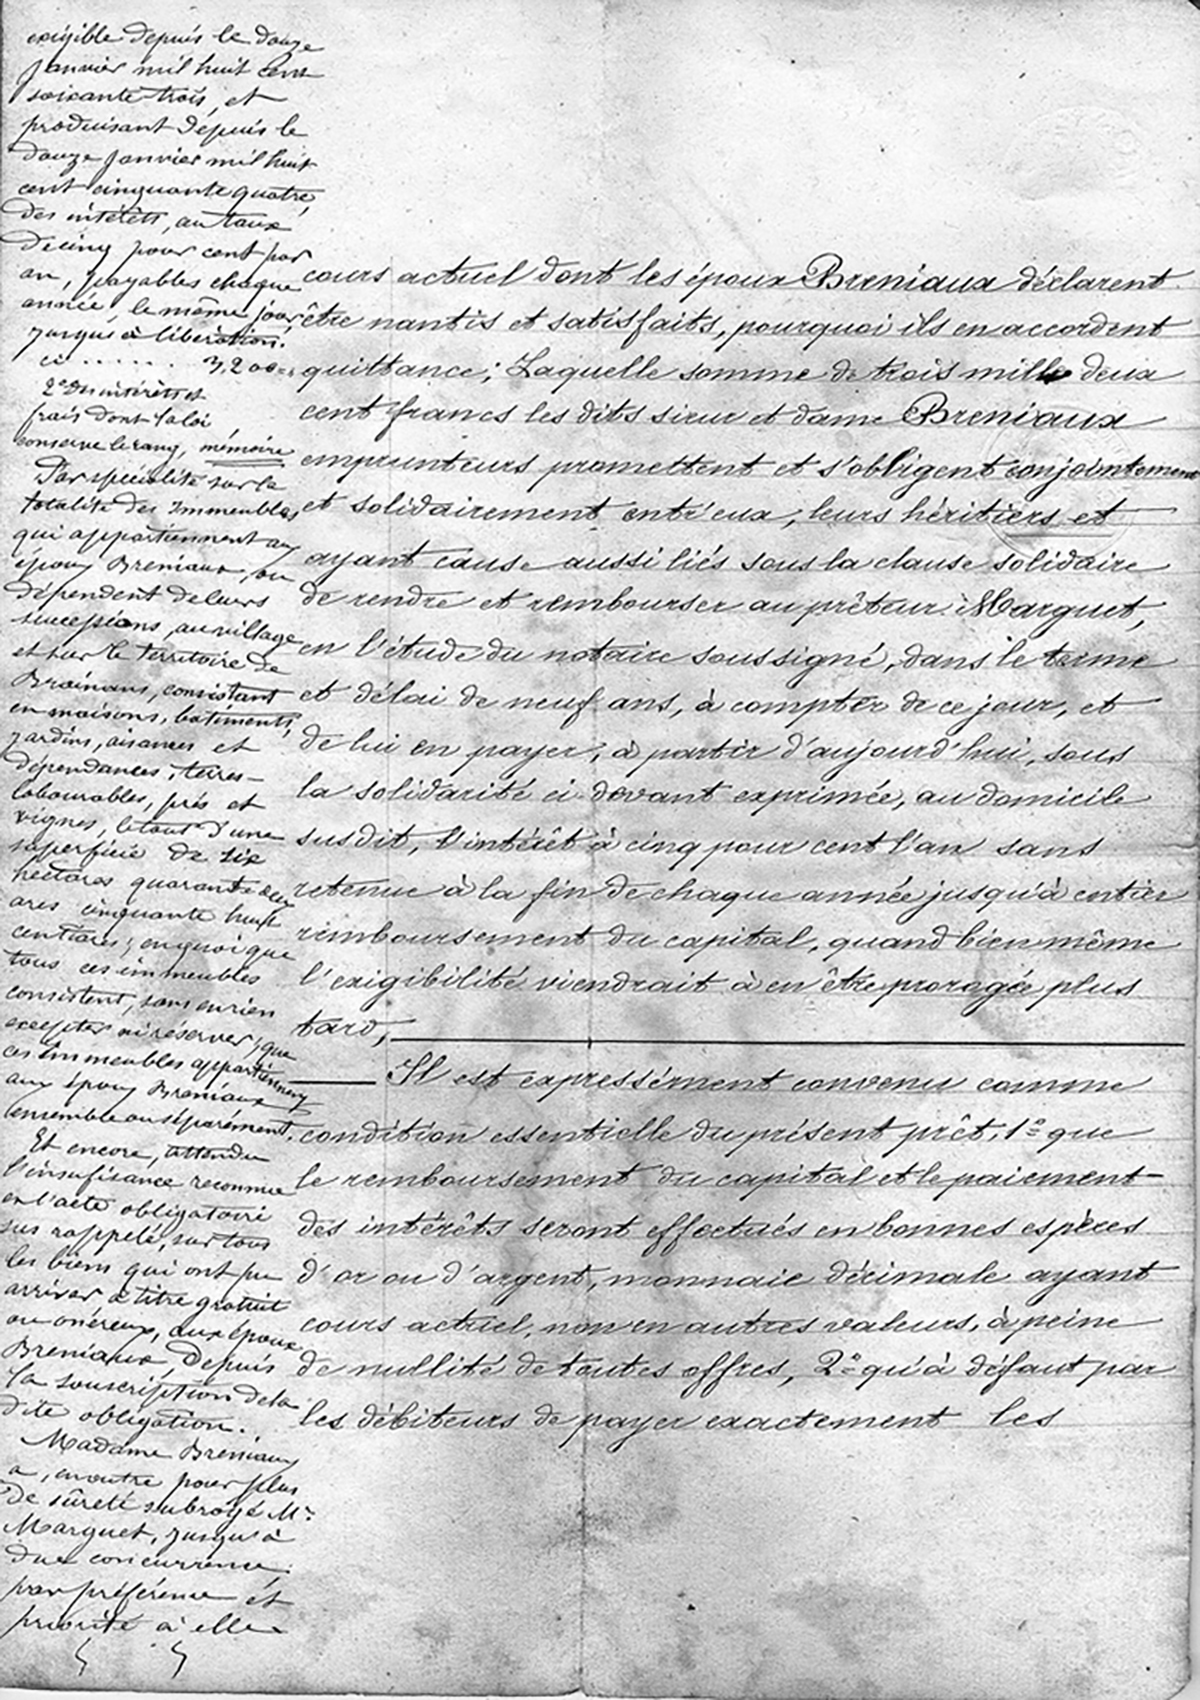 exigible depuis le douze
janvier mil huit cent
soixante trois, et
produisant depuis le
douze janvier mil huit
cent cinquante quatre,
des intérêts, au taux
de cinq pour cent par
an, payables chaque
année, le même jour,
jusqu'à libération.
ci ...... 3,200=
2° Des intérêts et
frais dont la loi
conserve le rang, mémoire
Par spécialité sur la
totalité des immeubles,
qui appartiennent aux
époux Breniaux, ou
dépendent de leurs
successions, au village
et sur le territoire de
Brainans, consistant
en maisons, bâtiments,
jardins, aisances et
dépendances, terres
labourables, prés et
vignes, le tout d'une
superficie de six
hectares quarante deux
ares cinquante huit
centiares; en quoi que
tous ces immeubles
consistent, sans en rien
excepter ni réserver; que
ces immeubles appartiennent
aux époux Breniaux
ensemble ou séparément.
Et encore, attendu
l'insufisance reconnue
en l'acte obligatoire
sus rappelé, sur tous
les biens qui ont pu
arriver à titre gratuit
ou onéreux, aux époux
Breniaux, depuis
la souscription de la
dite obligation.
Madame Breniaux
a, en outre pour plus
de sûreté subrogé Mr
Marguet, jusqu'à
due concurrence,
par préférence et
priorité à elle
cours actuel dont les époux Breniaux déclarent
être nantis et satisfaits, pourquoi ils en accordent
quittance; Laquelle somme de trois mille deux
cent francs les dits sieur et dame Breniaux
emprunteurs promettent et s'obligent conjointement
et solidairement entr'eux, leurs héritiers et
ayant cause aussi liés sous la clause solidaire
de rendre et rembourser au prêteur Marguet,
en l'étude du notaire soussigné, dans le terme
et délai de neuf ans, à compter de ce jour, et
de lui en payer, à partir d'aujourd'hui, sous
la solidarité ci-devant exprimée, au domicile
susdit, l'intérêt à cinq pour cent l'an sans
retenue à la fin de chaque année jusqu'à entier
remboursement du capital, quand bien même
l'exigibilité viendrait à en être prorogée plus
tard,
Il est expressément convenu comme
condition essentielle du présent prêt, 1° que
le remboursement du capital et le paiement
des intérêts seront effectués en bonnes espèces
d'or ou d'argent, monnaie décimale ayant
cours actuel, non en autres valeurs, à peine
de nullité de toutes offres, 2° qu'à défaut par
les débiteurs de payer exactement les